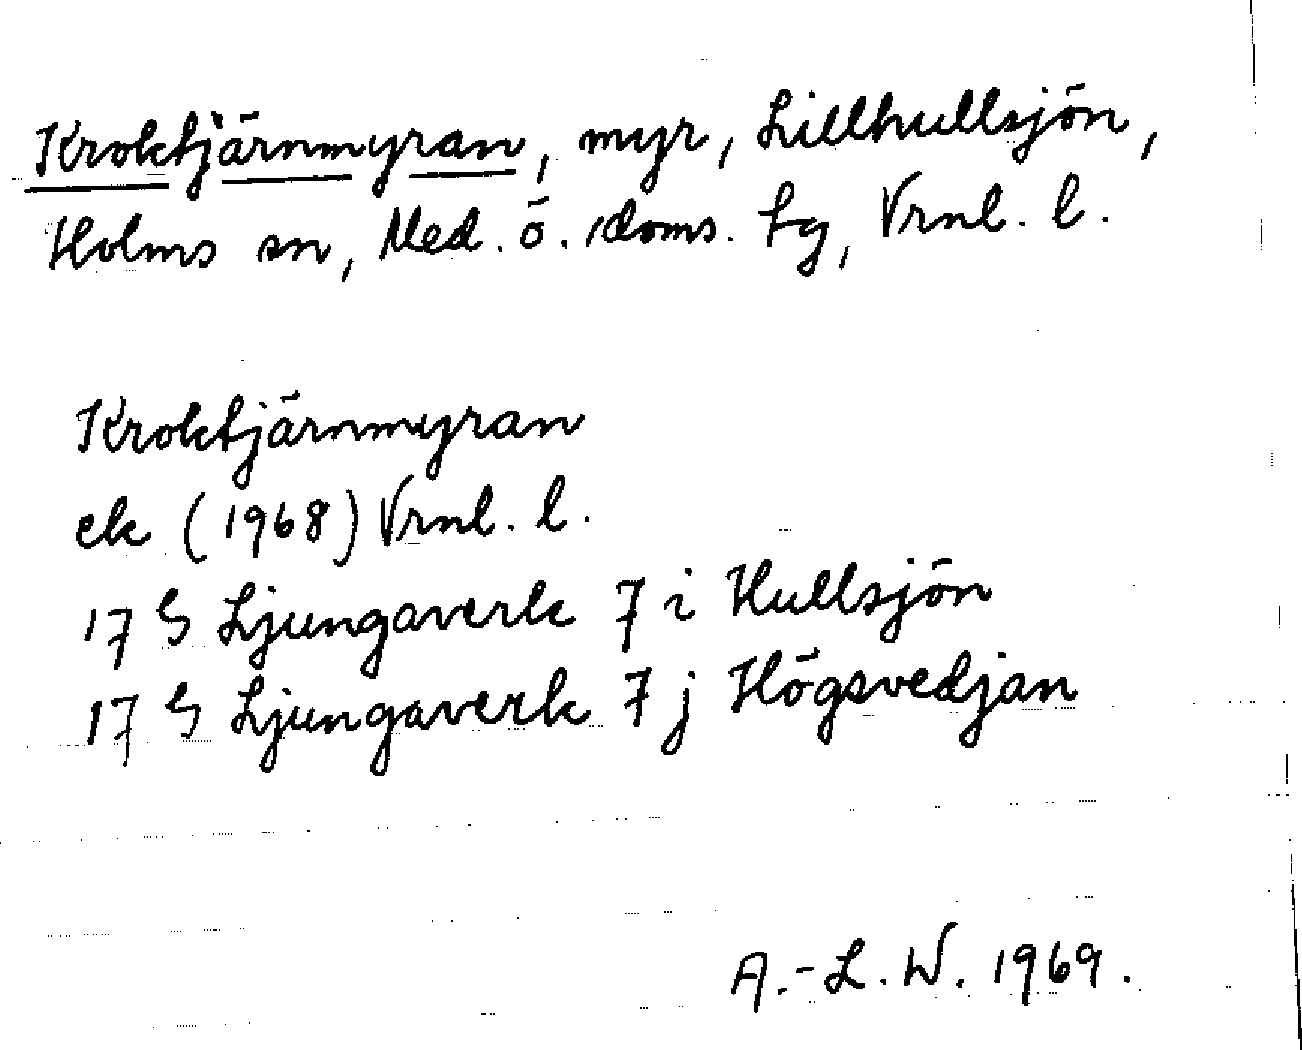 Kroktjärnmyran, myr, Lillhullsjön,
Holms sn, Med. ö. doms. tg, Vrnl. l.
Kroktjärnmyran
ek (1968) Vrnl. l.
17 G Ljungaverk 7 i Hullsjön
17 G Ljungaverk 7 j Högsvedjan
A.-L. W. 1969.